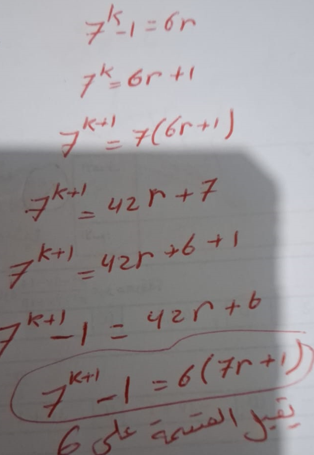 7^k - 1 = 6r
7^k = 6r + 1
7^{k+1} = 7(6r+1)
7^{k+1} = 42r + 7
7^{k+1} = 42r + 6 + 1
7^{k+1} - 1 = 42r + 6
7^{k+1} - 1 = 6(7r+1)
يقبل القسمة على 6